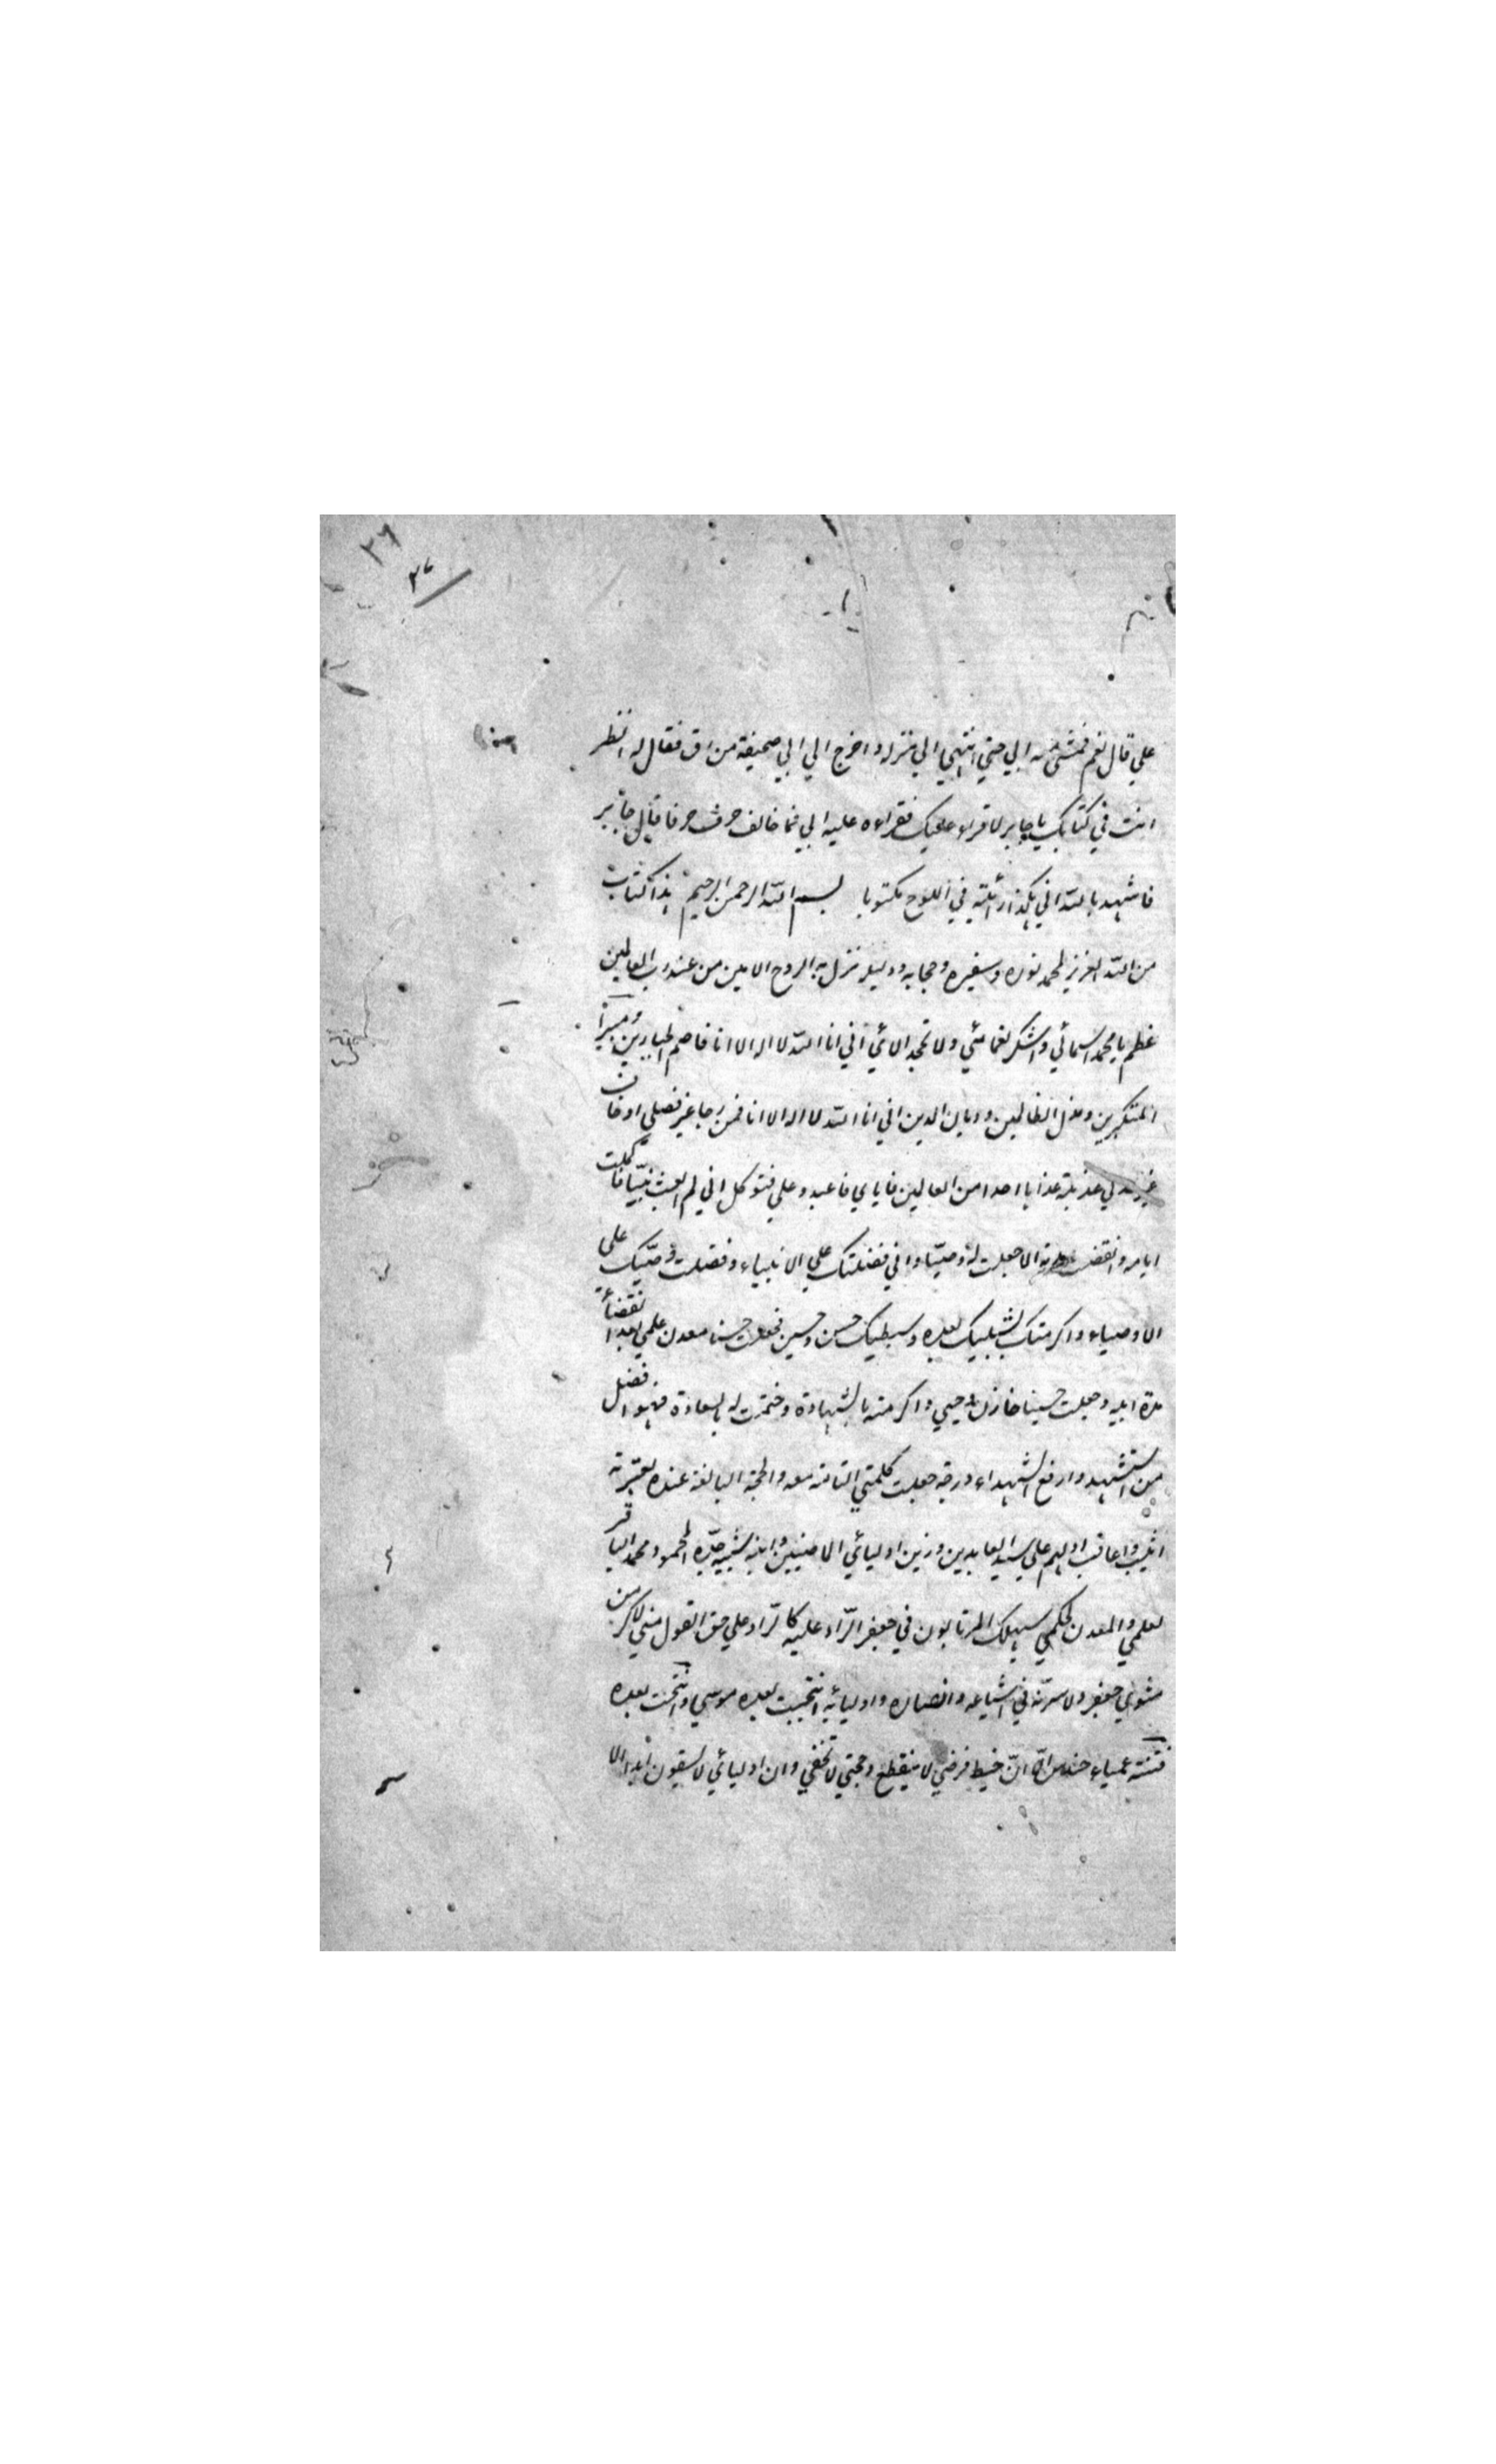 ٢٦
٣٧
علي قال نعم فمشي معه ابي حتي انتهي الي منزله و اخرج الي ابي صحيفة من رق فقال له انظر
انت في كتابك يا جابر لا قراء عليك فقراءه عليه ابي فما خالف حرف حرفا قال جابر
فاشهد بالله اني هكذا رأيته في اللوح مكتوبا بسم الله الرحمن الرحيم هذا كتاب
من الله العزيز لمحمد نوره و سفيره و حجابه و دليله نزل به الروح الامين من عند رب العالمين
عظم يا محمد اسمائي و اشكر نعمائي و لا تجحد الائي اني انا الله لا اله الا انا قاصم الجبارين و مبير
المتكبرين و مذل الظالمين و ديان الدين اني انا الله لا اله الا انا فمن رجا غير فضلي او خاف
غير عدلي عذبته عذابا احدا من العالمين فاياي فاعبد و علي فتوكل اني لم ابعث نبيا فاكملت
ايامه و انقضت مدته الا جعلت له وصيا و اني فضلتك علي الانبياء و فضلت وصيك علي
الاوصياء و اكرمتك بشبليك بعده و سبطيك حسن و حسين فجعلت حسنا معدن علمي بعد انقضاء
مدة ابيه و جعلت حسينا خازن وحيي و اكرمته بالشهادة و ختمت له بالسعادة فهو افضل
من استشهد و ارفع الشهداء درجة جعلت كلمتي التامة معه و الحجة البالغة عنده بعترته
اثيب و اعاقب اولهم علي سيد العابدين و زين اوليائي الماضيين و ابنه شبيه جده المحمود محمد الباقر
لعلمي و المعدن لحكمي سيهلك المرتابون في جعفر الراد عليه كالراد علي حق القول مني لاكرمن
مثوي جعفر و لاسرنه في اشياعه و انصاره و اوليائه انتجبت بعده موسي و انتجبت بعده
فتنة عمياء حندس ان خيط فرضي لا ينقطع و حجتي لا تخفي و ان اوليائي لا يشقون ابدا الا